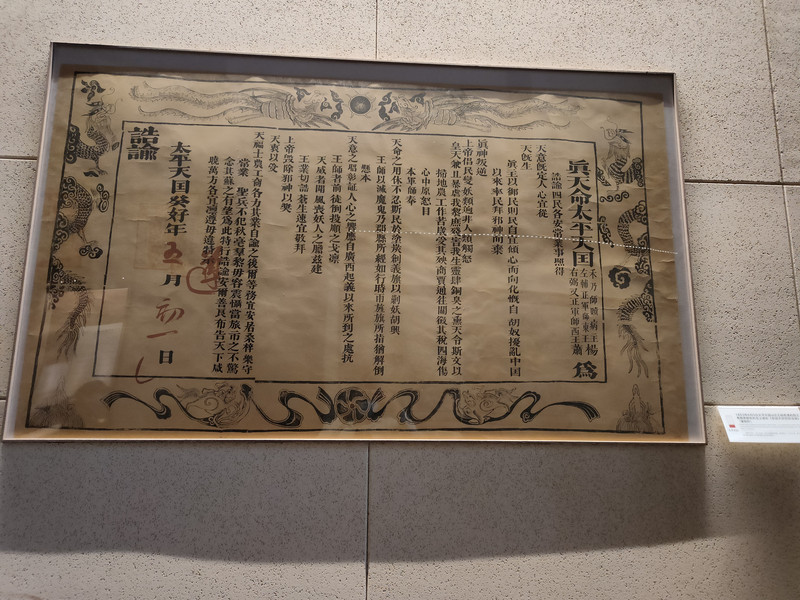 眞天命太平天国
禾乃師贖病主
左輔正軍師東王楊
右弼又正軍師西王蕭
爲
誥諭四民各安常業事照得
天意旣定人心宜從
天旣生
眞主以御民則民自宜傾心而向化慨自胡奴擾亂中国
以來率民拜邪神而棄
眞神叛逆
上帝倡民變妖類逈非人類觸怒
皇天兼且暴虐我黎庶殘害我生靈肆銅臭之熏天令斯文以
掃地農工作苦歲受其殃商賈通往關徵其稅四海傷
心中原怒目
本軍師奉
天命之用休不忍斯民於塗炭創義旗以剿妖胡興
王師以滅魔鬼乃郡縣所經如行時雨旌旗所指猶解倒
懸本
天意之昭彰証人心之嚮應自廣西起義以來所到之處抗
王師者前徒倒戈投順之戈凛
天威者聞風喪妖人之膽茲建
王業切誥蒼生速宜敬拜
上帝毀除邪神以奬
天衷以受
天福士農工商各力其業自諭之後爾等務宜安居桑梓樂守
常業聖兵不犯秋毫羣黎毋容震懾當旅市之不驚
念其蘇之有望爲此特行誥諭安爾善良布告天下咸
曉萬方各宜凛遵毋違特
太平天国癸好年五月初一日
誥諭